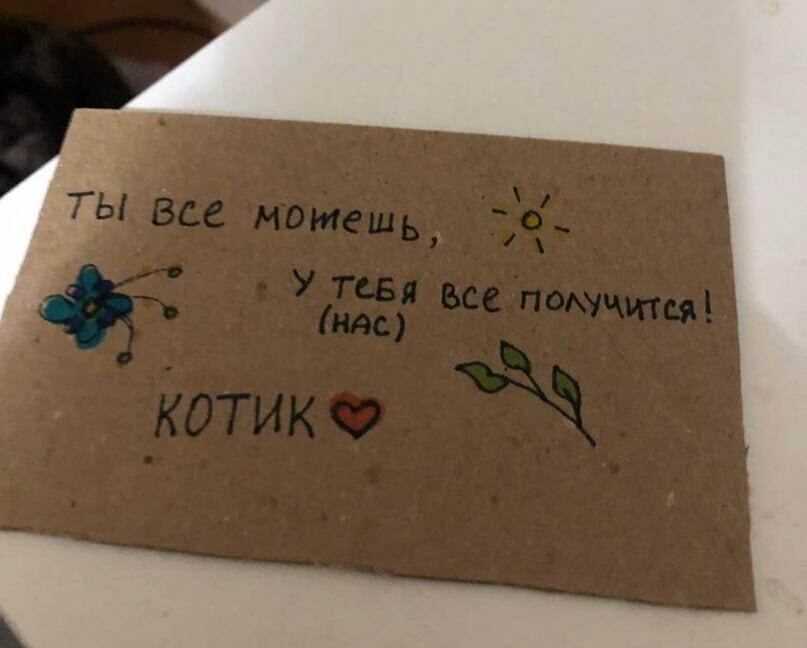 ты все можешь,
у тебя все получится!
(нас)
котик